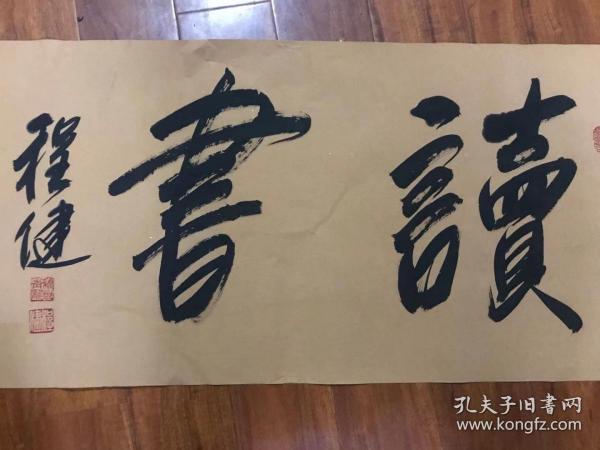 讀書
程健
孔夫子旧書网
www.kongfz.com